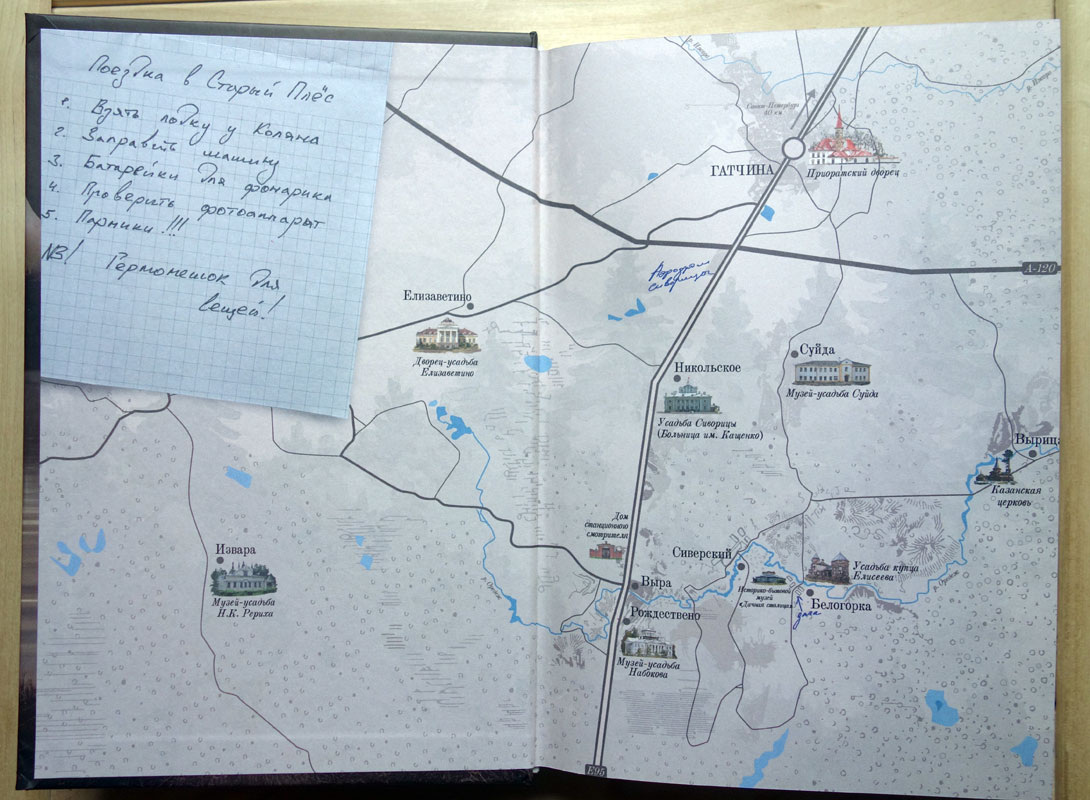 Поездка в Старый Плёс
1. Взять лодку у Коляна
2. Заправить машину
3. Батарейки для фонарика
4. Проверить фотоаппарат
5. Парники!!!
NB! Гермомешок для
вещей!
р. Ижора
р. Ижора
Санкт-Петербург
40 км
ГАТЧИНА
Приоратский дворец
А-120
Аэродром
Сиверицы
Елизаветино
Дворец-усадьба
Елизаветино
Суйда
Музей-усадьба Суйда
Никольское
Усадьба Сиворицы
(Больница им. Кащенко)
Вырица
Казанская
церковь
Дом
станционного
смотрителя
Извара
Музей-усадьба
Н.К. Рериха
Сиверский
Историко-бытовой
музей
«Дачная столица»
Усадьба купца
Елисеева
р. Оредеж
р. Оредеж
Выра
Белогорка
дача
Рождествено
Музей-усадьба
Набокова
E95